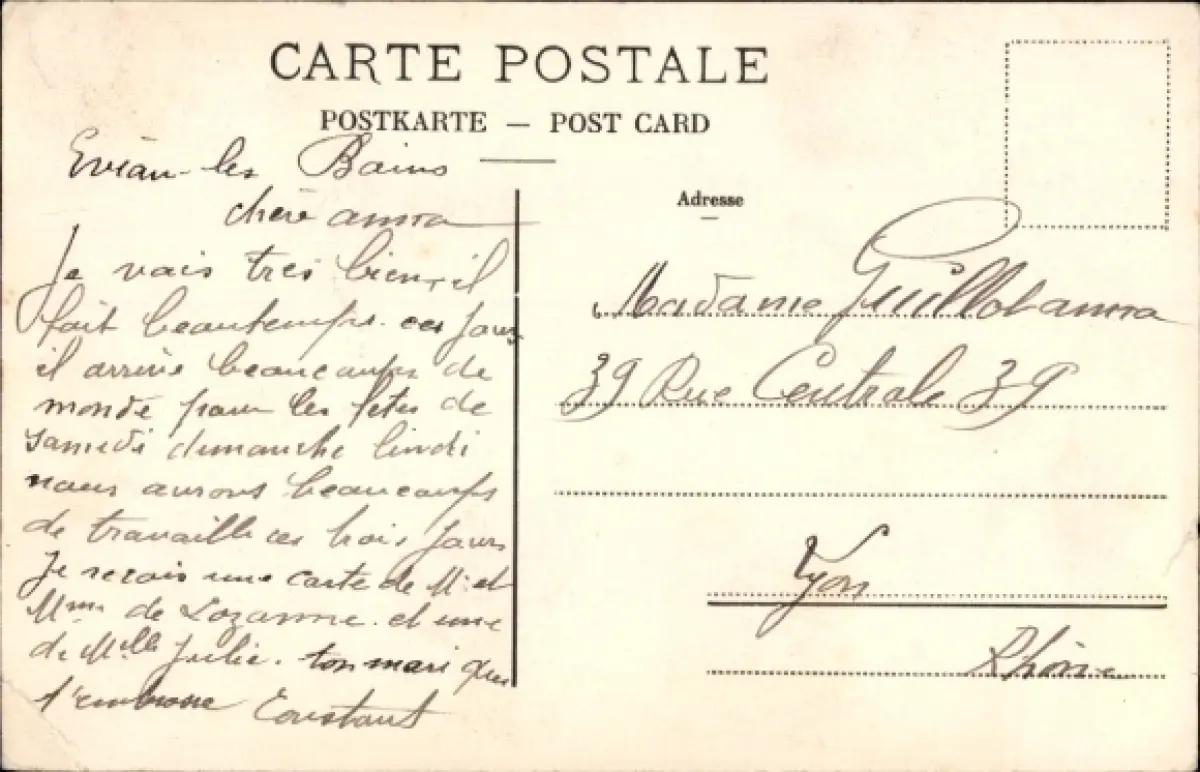 CARTE POSTALE
POSTKARTE — POST CARD
Evian-les Bains
chère anna
Je vais très bien, il
fait beautemps. ces jours
il arrive beaucoups de
monde pour les fêtes de
samedi dimanche lundi
nous aurons beaucoups
de travaille ces trois jours
Je reçois une carte de Mr et
Mme de Lozanne. et une
de Melle Julie. ton mari qui
t'embrasse Constant
Adresse
Madame Guillot anna
39 Rue Centrale 39
Lyon
Rhône